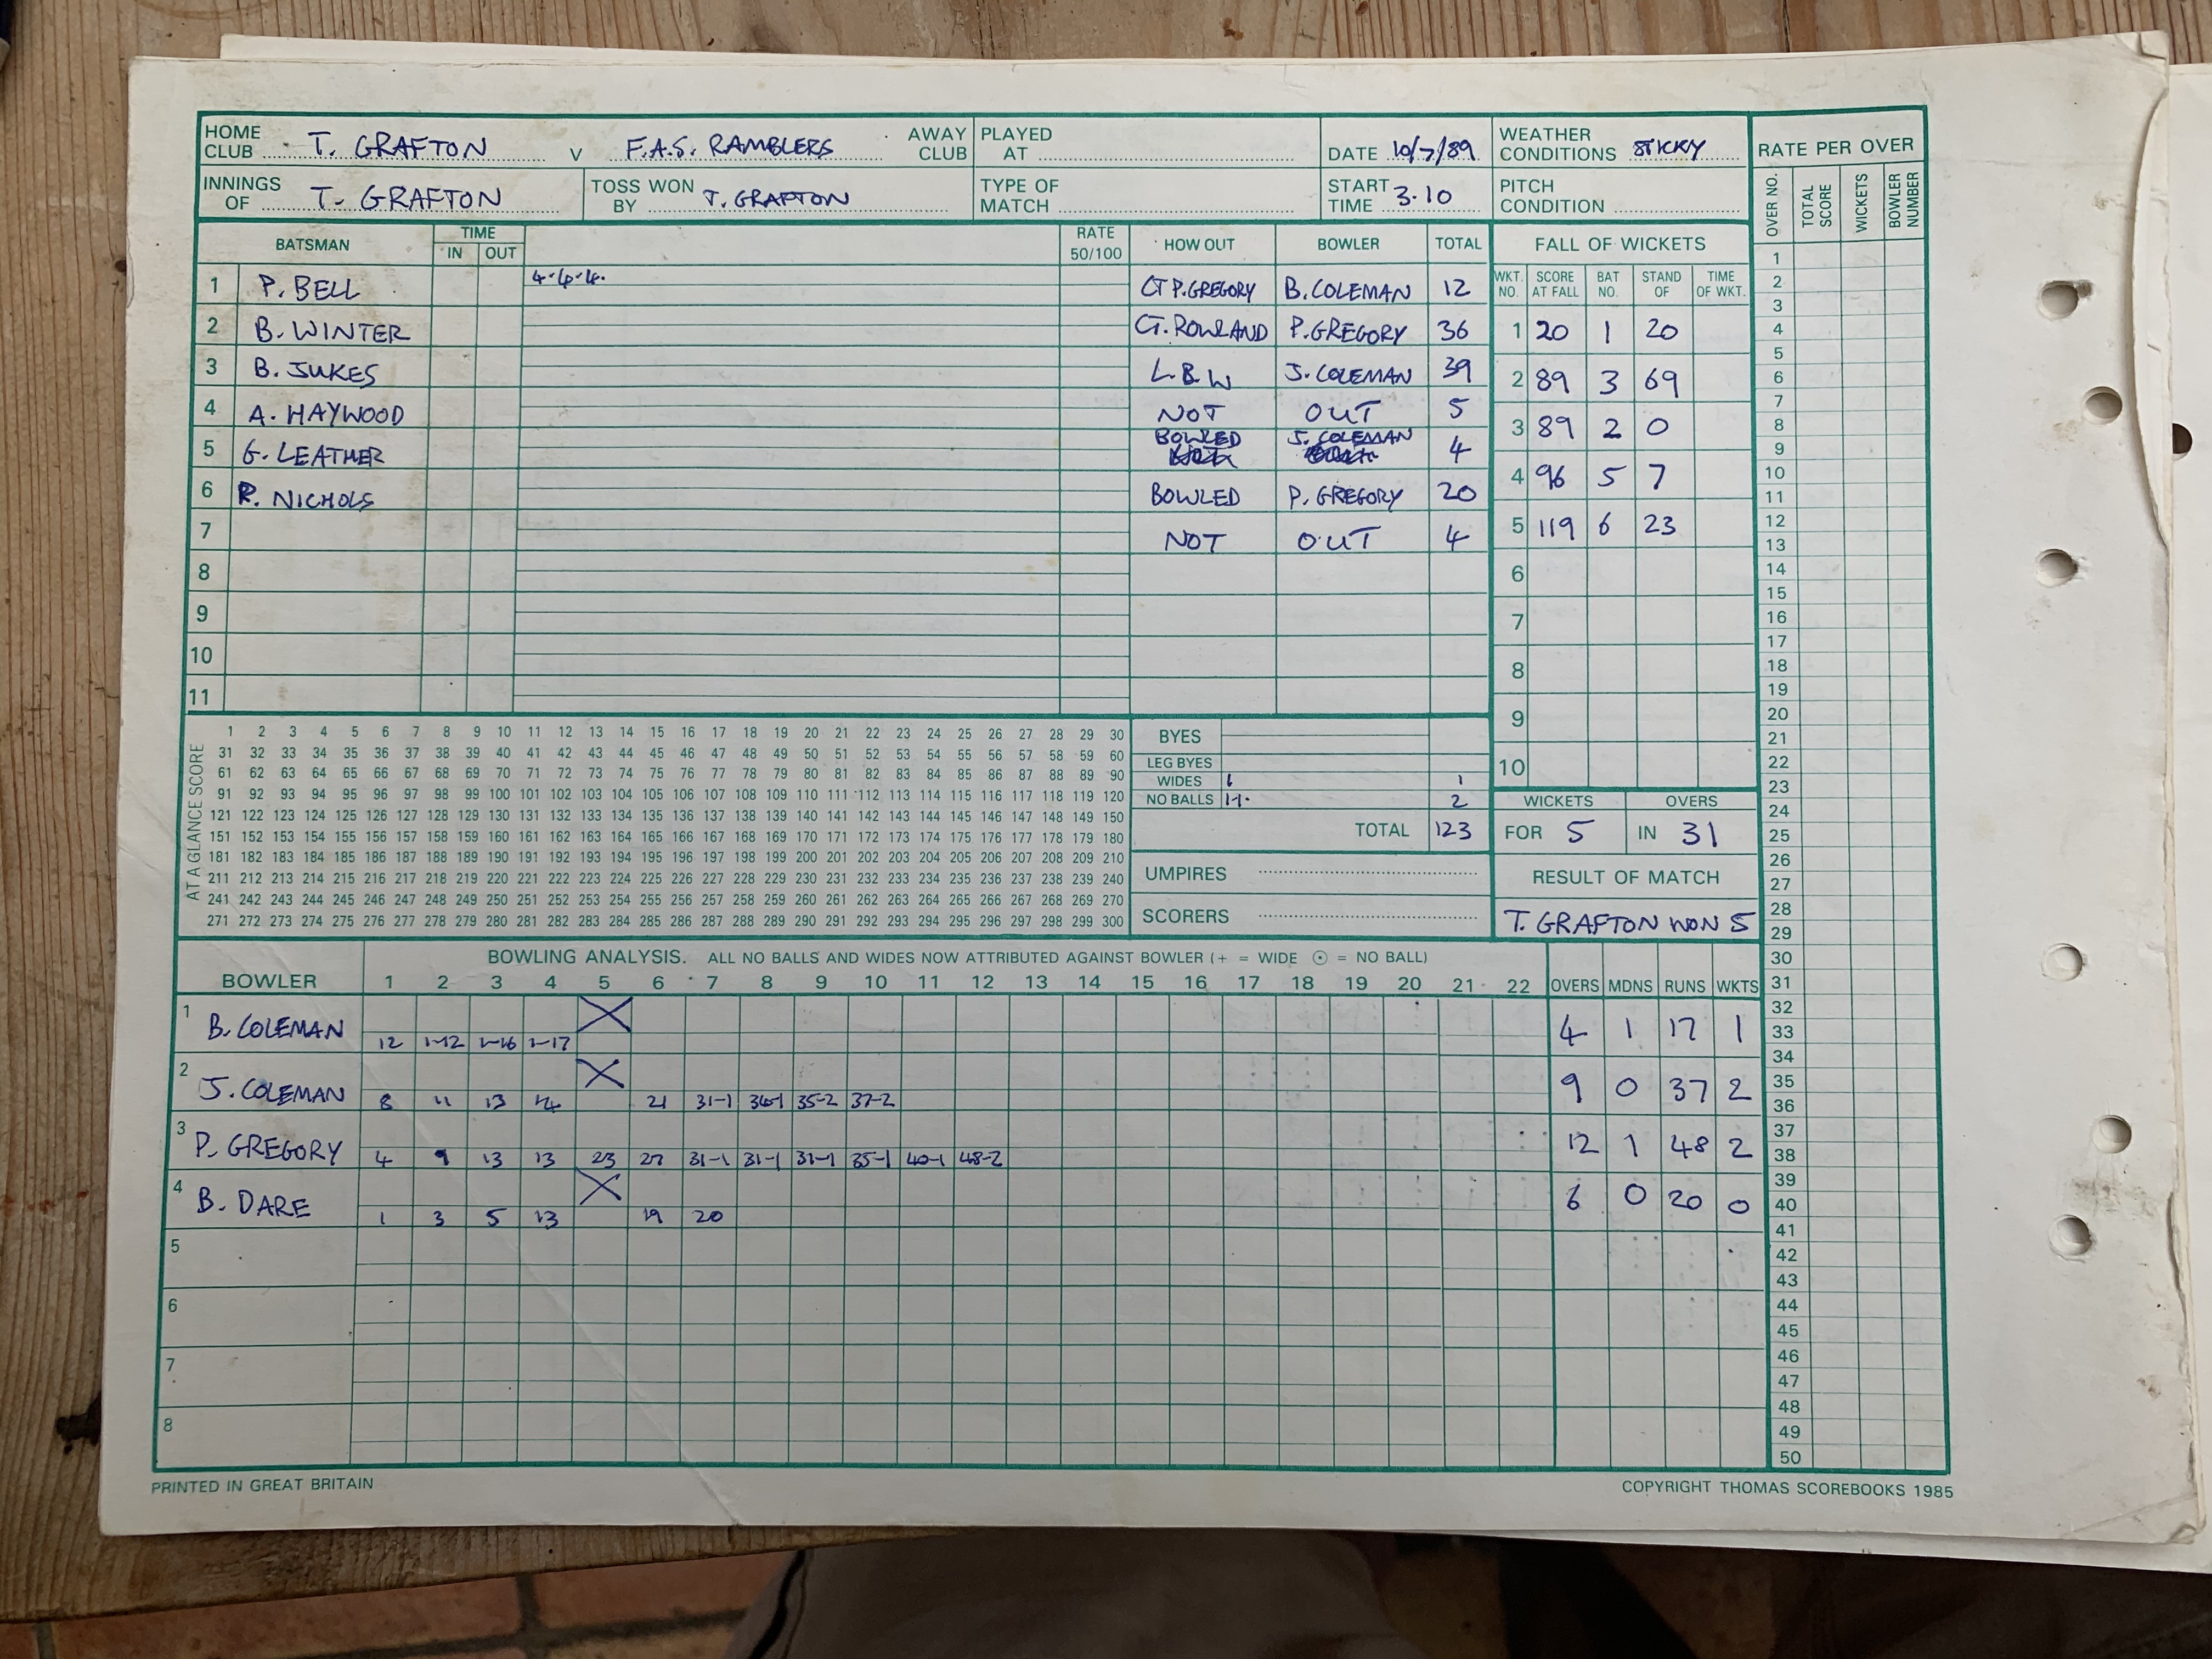 HOME CLUB T. GRAFTON V F.A.S. RAMBLERS AWAY CLUB PLAYED AT DATE 10/7/89 WEATHER CONDITIONS STICKY
INNINGS OF T. GRAFTON TOSS WON BY T. GRAFTON TYPE OF MATCH START TIME 3.10 PITCH CONDITION
RATE PER OVER
OVER NO. TOTAL SCORE WICKETS BOWLER NUMBER
BATSMAN TIME IN OUT RATE 50/100 HOW OUT BOWLER TOTAL
1 P. BELL 4.4.4. CT P. GREGORY B. COLEMAN 12
2 B. WINTER CT. ROWLAND P. GREGORY 36
3 B. JUKES L.B.W J. COLEMAN 39
4 A. HAYWOOD NOT OUT 5
5 G. LEATHER BOWLED J. COLEMAN 4
6 R. NICHOLS BOWLED P. GREGORY 20
7 NOT OUT 4
8
9
10
11
FALL OF WICKETS
WKT. NO. SCORE AT FALL BAT NO. STAND OF TIME OF WKT.
1 20 1 20
2 89 3 69
3 89 2 0
4 96 5 7
5 119 6 23
6
7
8
9
10
AT A GLANCE SCORE
1 2 3 4 5 6 7 8 9 10 11 12 13 14 15 16 17 18 19 20 21 22 23 24 25 26 27 28 29 30
31 32 33 34 35 36 37 38 39 40 41 42 43 44 45 46 47 48 49 50 51 52 53 54 55 56 57 58 59 60
61 62 63 64 65 66 67 68 69 70 71 72 73 74 75 76 77 78 79 80 81 82 83 84 85 86 87 88 89 90
91 92 93 94 95 96 97 98 99 100 101 102 103 104 105 106 107 108 109 110 111 112 113 114 115 116 117 118 119 120
121 122 123 124 125 126 127 128 129 130 131 132 133 134 135 136 137 138 139 140 141 142 143 144 145 146 147 148 149 150
151 152 153 154 155 156 157 158 159 160 161 162 163 164 165 166 167 168 169 170 171 172 173 174 175 176 177 178 179 180
181 182 183 184 185 186 187 188 189 190 191 192 193 194 195 196 197 198 199 200 201 202 203 204 205 206 207 208 209 210
211 212 213 214 215 216 217 218 219 220 221 222 223 224 225 226 227 228 229 230 231 232 233 234 235 236 237 238 239 240
241 242 243 244 245 246 247 248 249 250 251 252 253 254 255 256 257 258 259 260 261 262 263 264 265 266 267 268 269 270
271 272 273 274 275 276 277 278 279 280 281 282 283 284 285 286 287 288 289 290 291 292 293 294 295 296 297 298 299 300
BYES
LEG BYES
WIDES 1 1
NO BALLS 1.1. 2
TOTAL 123
UMPIRES
SCORERS
WICKETS OVERS
FOR 5 IN 31
RESULT OF MATCH
T. GRAFTON WON 5
BOWLING ANALYSIS. ALL NO BALLS AND WIDES NOW ATTRIBUTED AGAINST BOWLER (+ = WIDE ⊙ = NO BALL)
BOWLER 1 2 3 4 5 6 7 8 9 10 11 12 13 14 15 16 17 18 19 20 21 22 OVERS MDNS RUNS WKTS
1 B. COLEMAN 12 1-12 1-16 1-17 4 1 17 1
2 J. COLEMAN 8 11 13 14 21 31-1 34-1 35-2 37-2 9 0 37 2
3 P. GREGORY 4 9 13 13 23 27 31-1 31-1 31-1 35-1 40-1 48-2 12 1 48 2
4 B. DARE 1 3 5 13 19 20 6 0 20 0
5
6
7
8
1
2
3
4
5
6
7
8
9
10
11
12
13
14
15
16
17
18
19
20
21
22
23
24
25
26
27
28
29
30
31
32
33
34
35
36
37
38
39
40
41
42
43
44
45
46
47
48
49
50
PRINTED IN GREAT BRITAIN
COPYRIGHT THOMAS SCOREBOOKS 1985